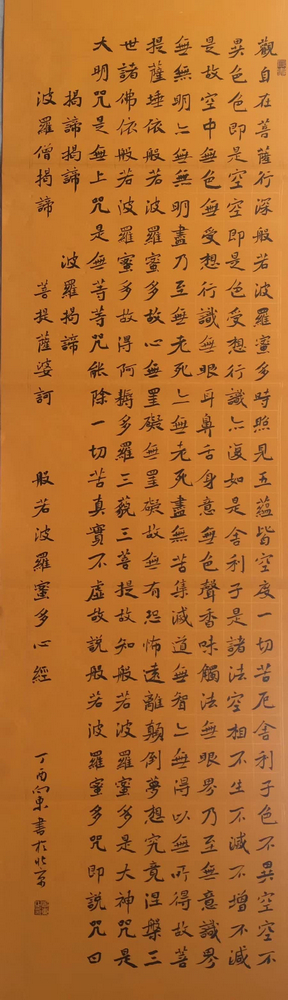 觀自在菩薩行深般若波羅蜜多時照見五蘊皆空度一切苦厄舍利子色不異空空不
異色色即是空空即是色受想行識亦復如是舍利子是諸法空相不生不滅不增不減
是故空中無色無受想行識無眼耳鼻舌身意無色聲香味觸法無眼界乃至無意識界
無無明亦無無明盡乃至無老死亦無老死盡無苦集滅道無智亦無得以無所得故菩
提薩埵依般若波羅蜜多故心無罣礙無罣礙故無有恐怖遠離顛倒夢想究竟涅槃三
世諸佛依般若波羅蜜多故得阿耨多羅三藐三菩提故知般若波羅蜜多是大神咒是
大明咒是無上咒是無等等咒能除一切苦真實不虛故說般若波羅蜜多咒即說咒曰
揭諦揭諦 波羅揭諦
波羅僧揭諦 菩提薩婆訶 般若波羅蜜多心經
丁酉向東書於北京